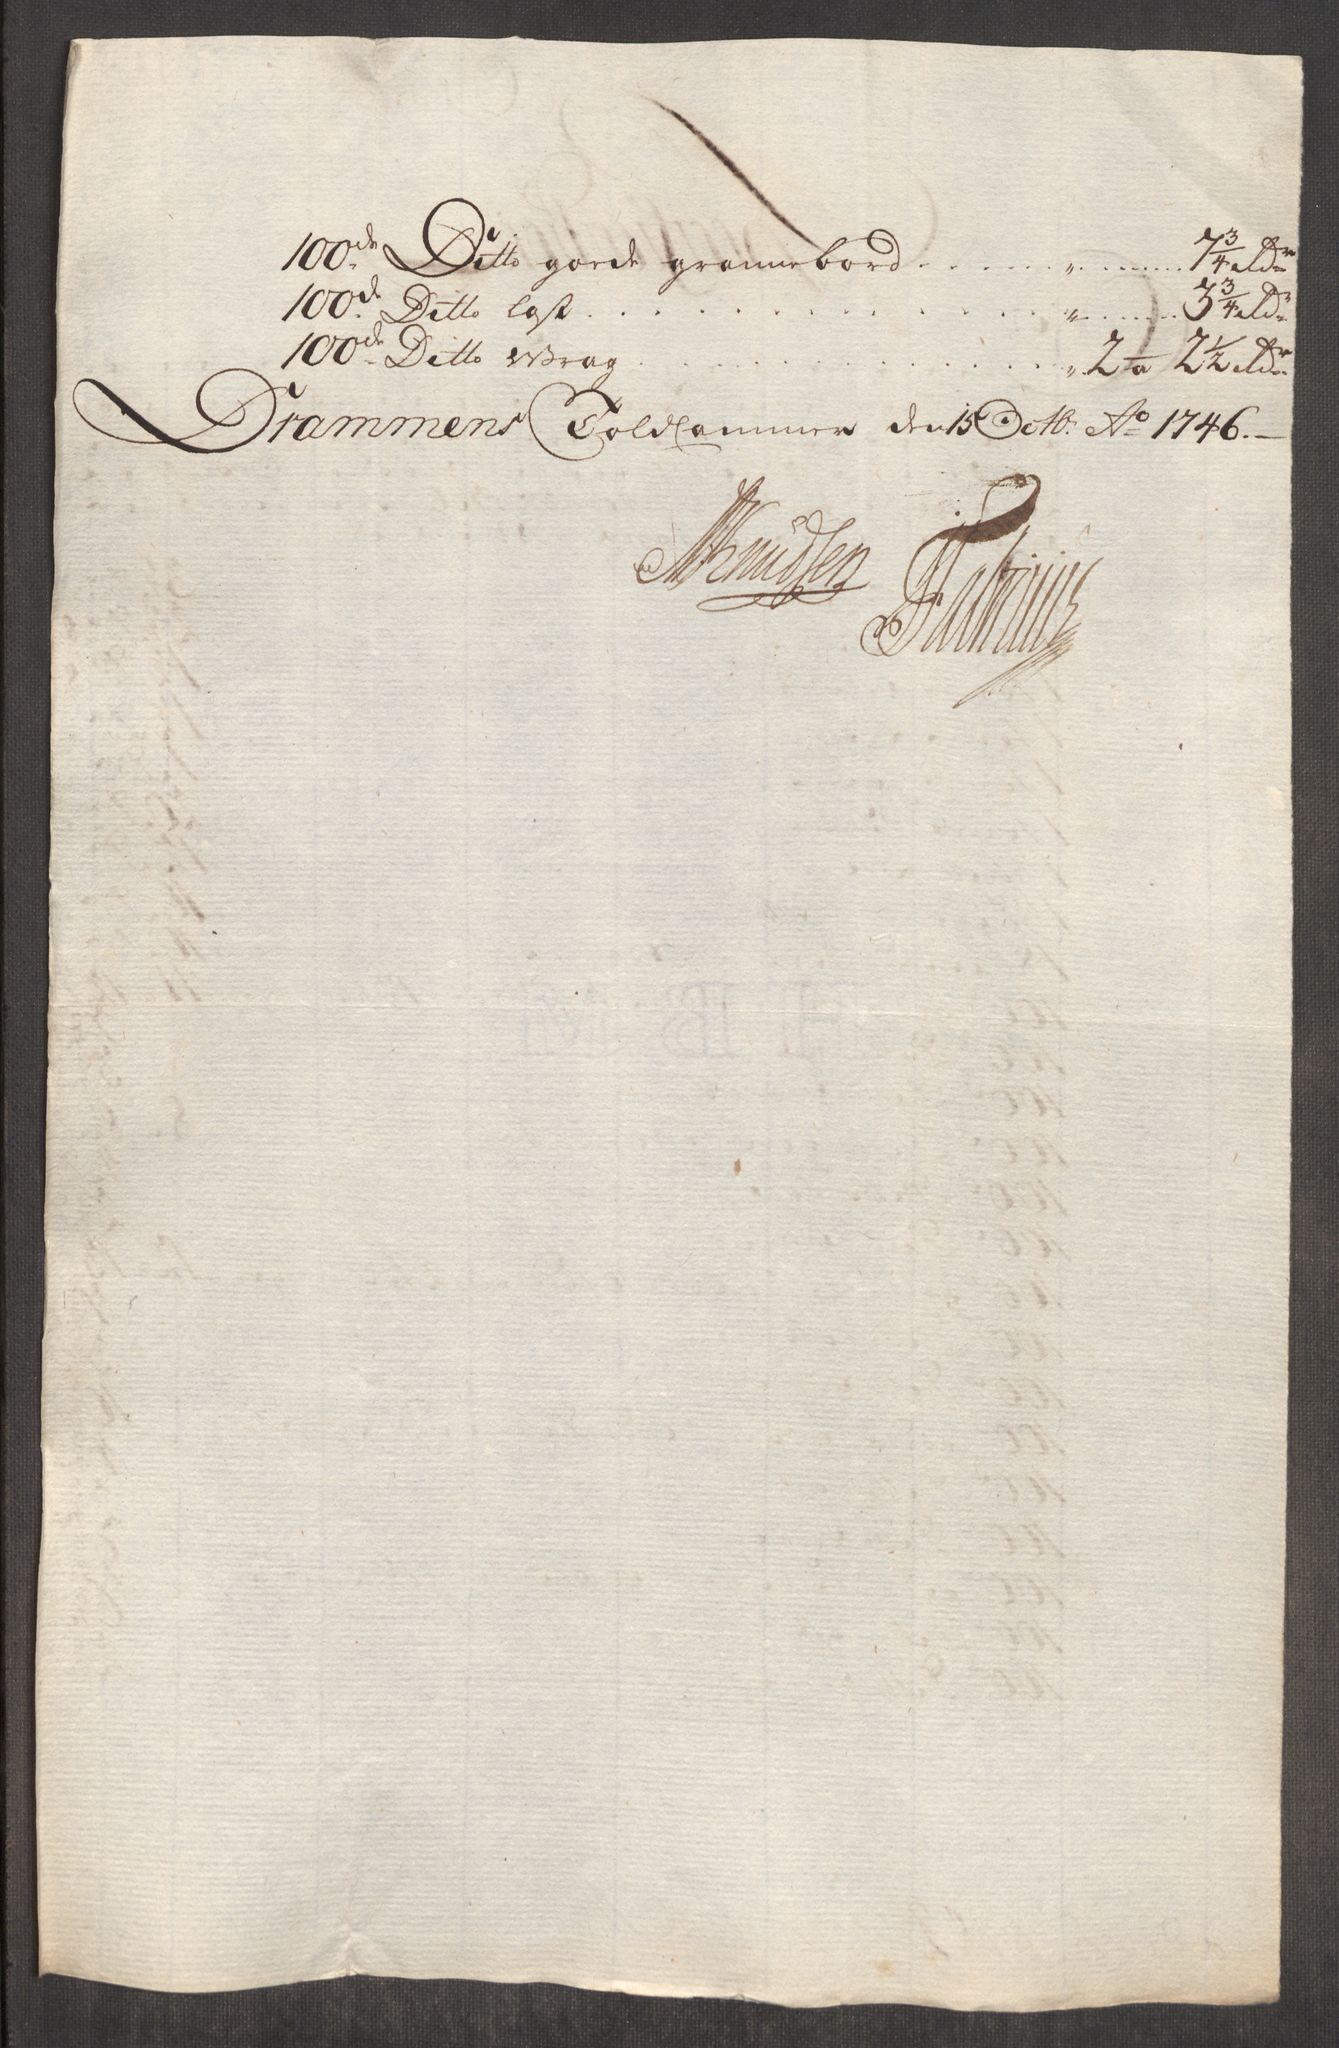 100de Ditto goede grannebord . . . . . . „ . . . . . 7 3/4 Rdr
100de Ditto last . . . . . . . . . . . . „ . . . . . 3 3/4 Rdr
100de Ditto Wrag . . . . . . . . . . . . „ 2 a 2 1/2 Rdr
Drammens Toldkammer den 15 Octb: Ao 1746. —
Knudsen